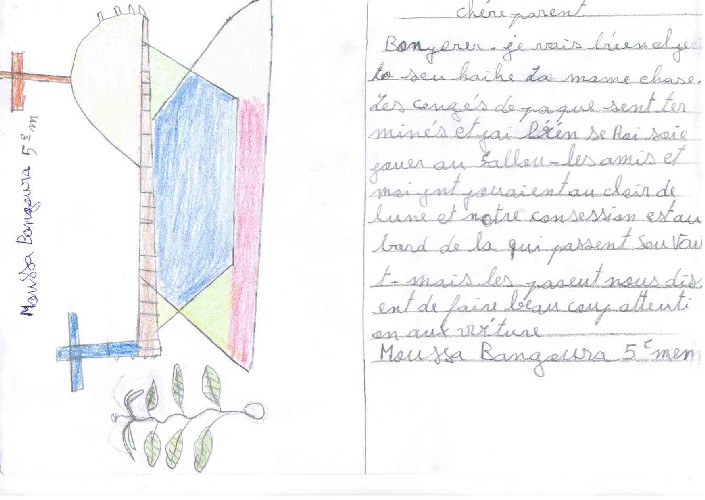 Moussa Bangoura 5è m
chère parent
Bonjerer. je vais bien et je
souhaihe la mame chase.
Les congés de paque sent ter
minés et jai bien se
jouer au Ballon- les amis et
moi ont jouaient au clair de
lune et notre consession est au
bard de la qui passent Souvau
t- mais les parent nous dis
ent de faire beau coup attenti
on aux virture
Moussa Bangoura 5è mem